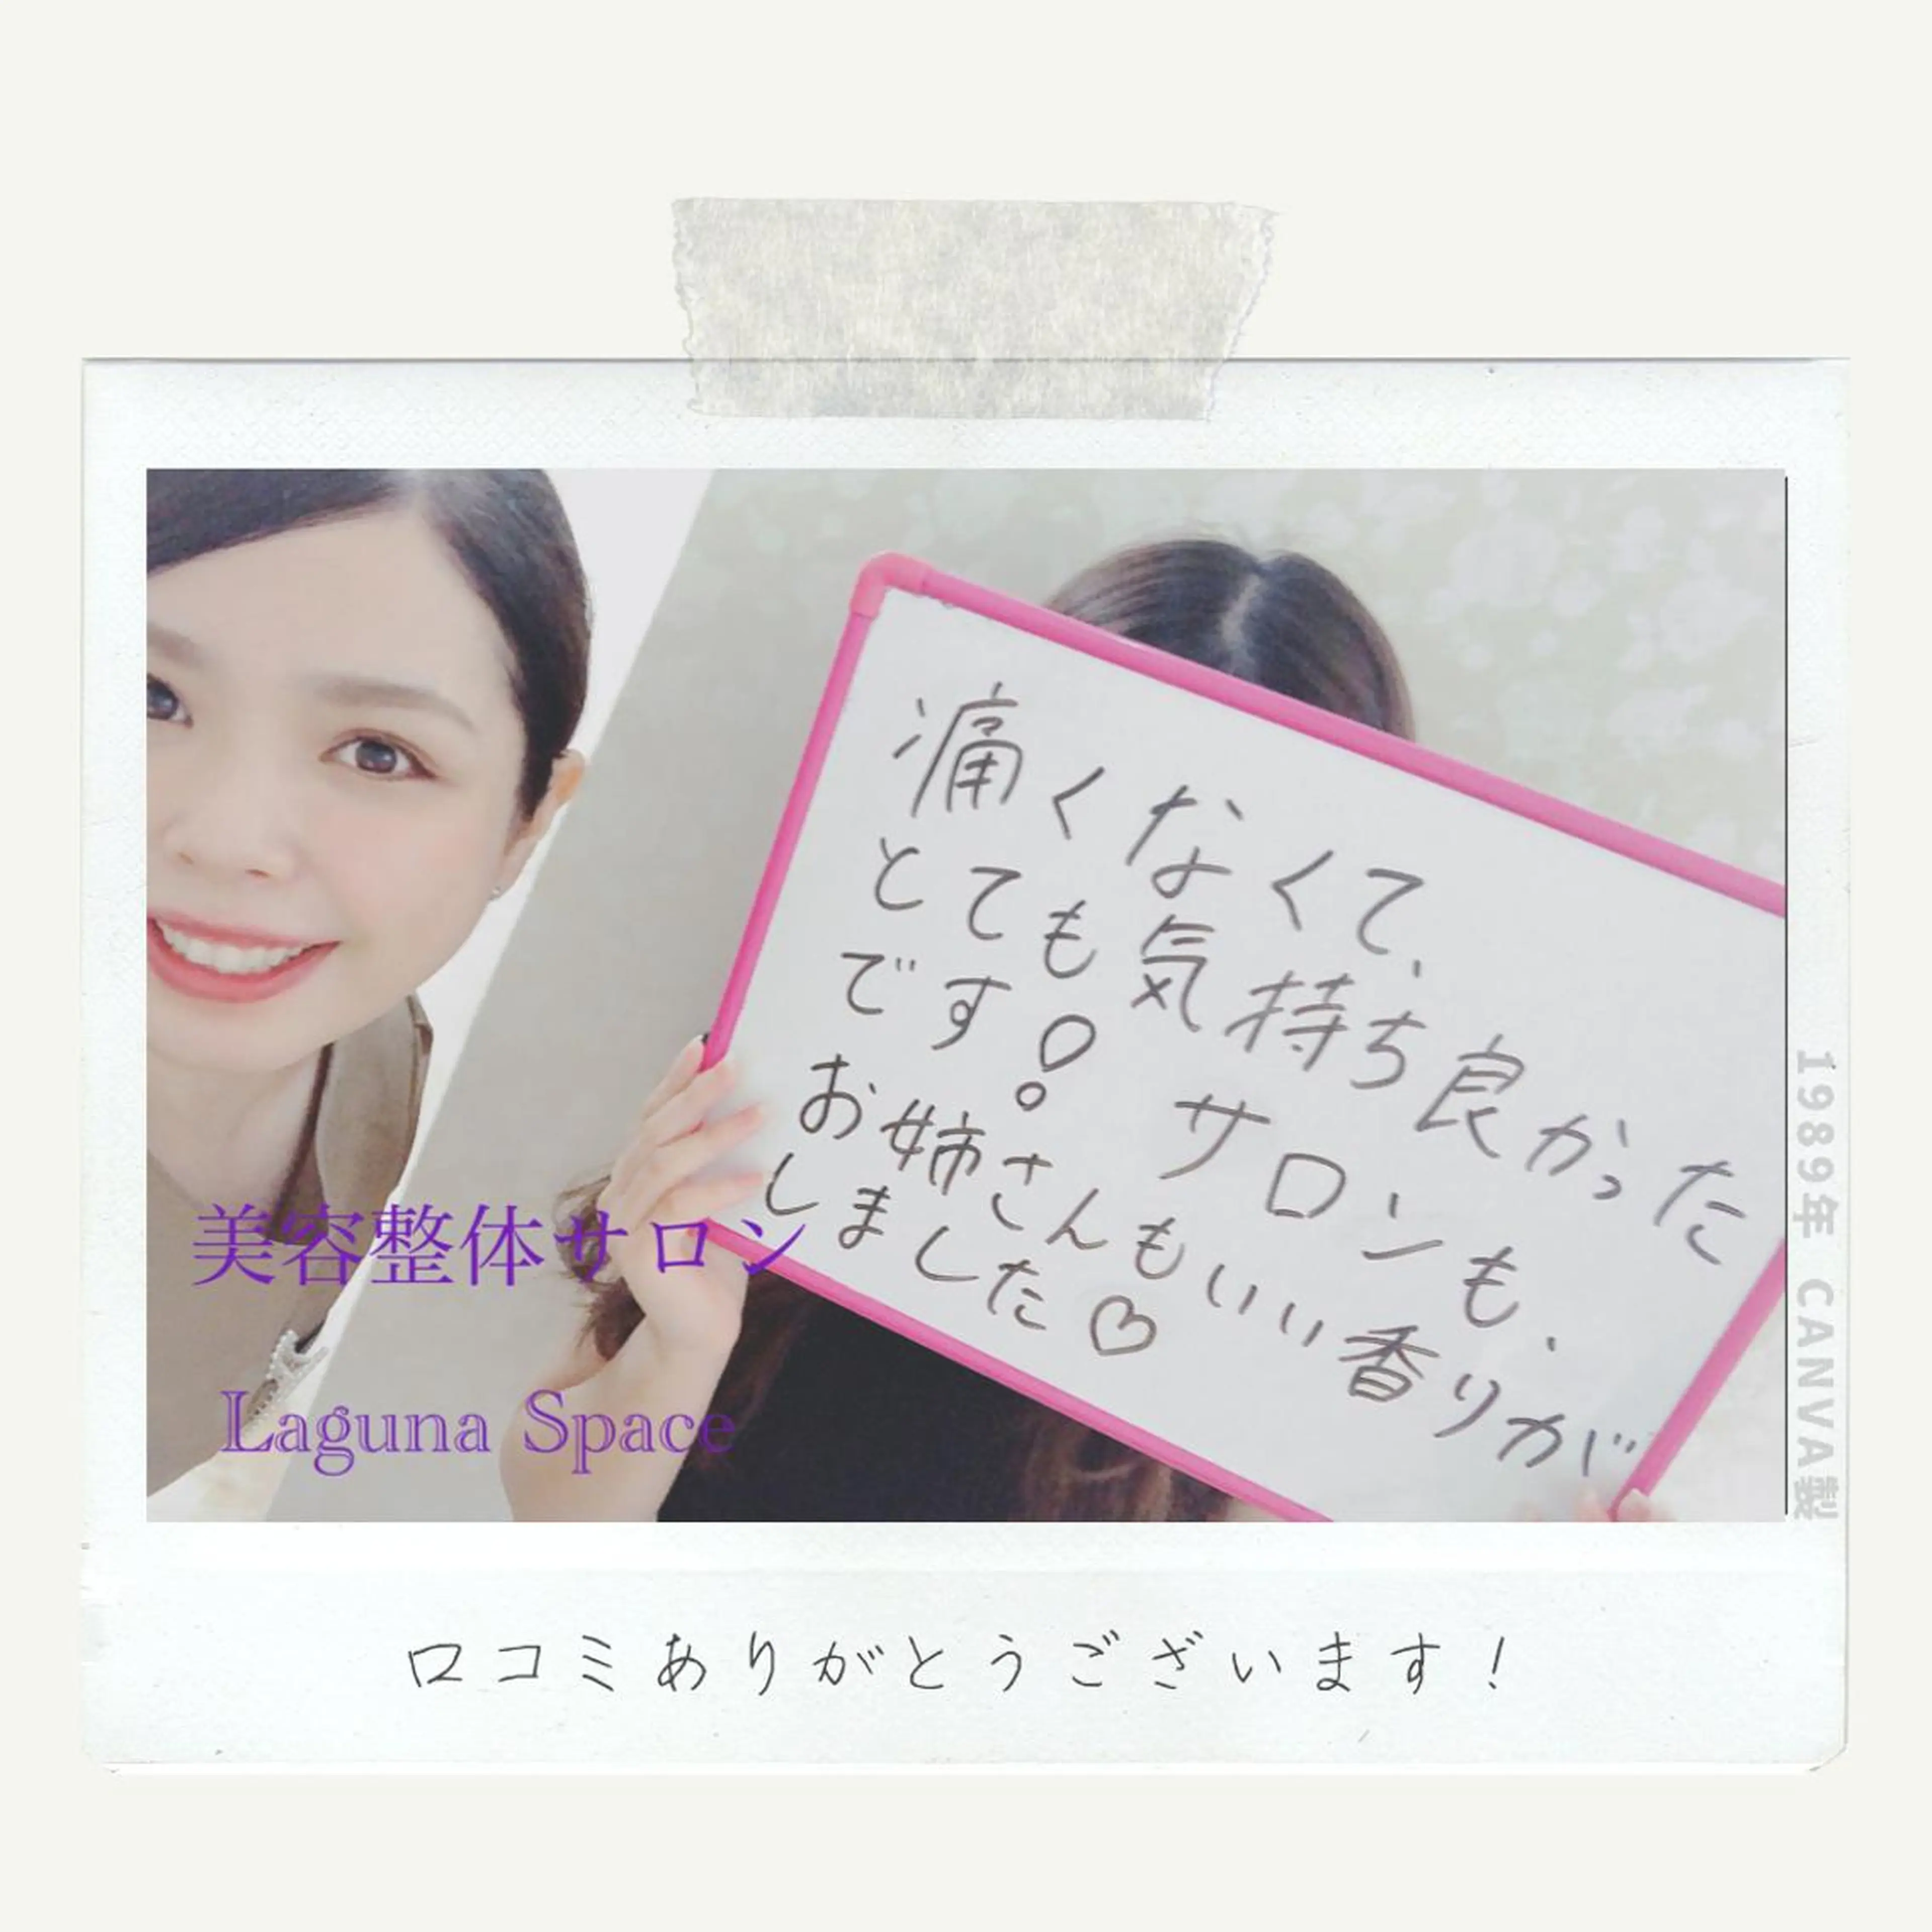 痛くなくて、
とても気持ち良かった
です！ サロンも、
お姉さんもいい香りが
しました♡
美容整体サロン
Laguna Space
1989年 CANVA製
口コミありがとうございます！